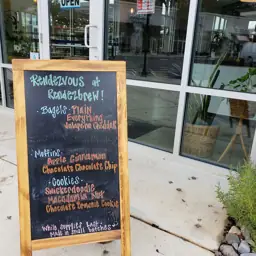 OPEN
Rendezvous at
Rendezbrew!
Bagels: Plain
Everything
Jalapeño Cheddar
Muffins:
Apple Cinnamon
Chocolate Chocolate Chip
Cookies:
Snickerdoodle
Macadamia Nut
Chocolate Brownie Cookie
While Supplies Last
Made in Small Batches